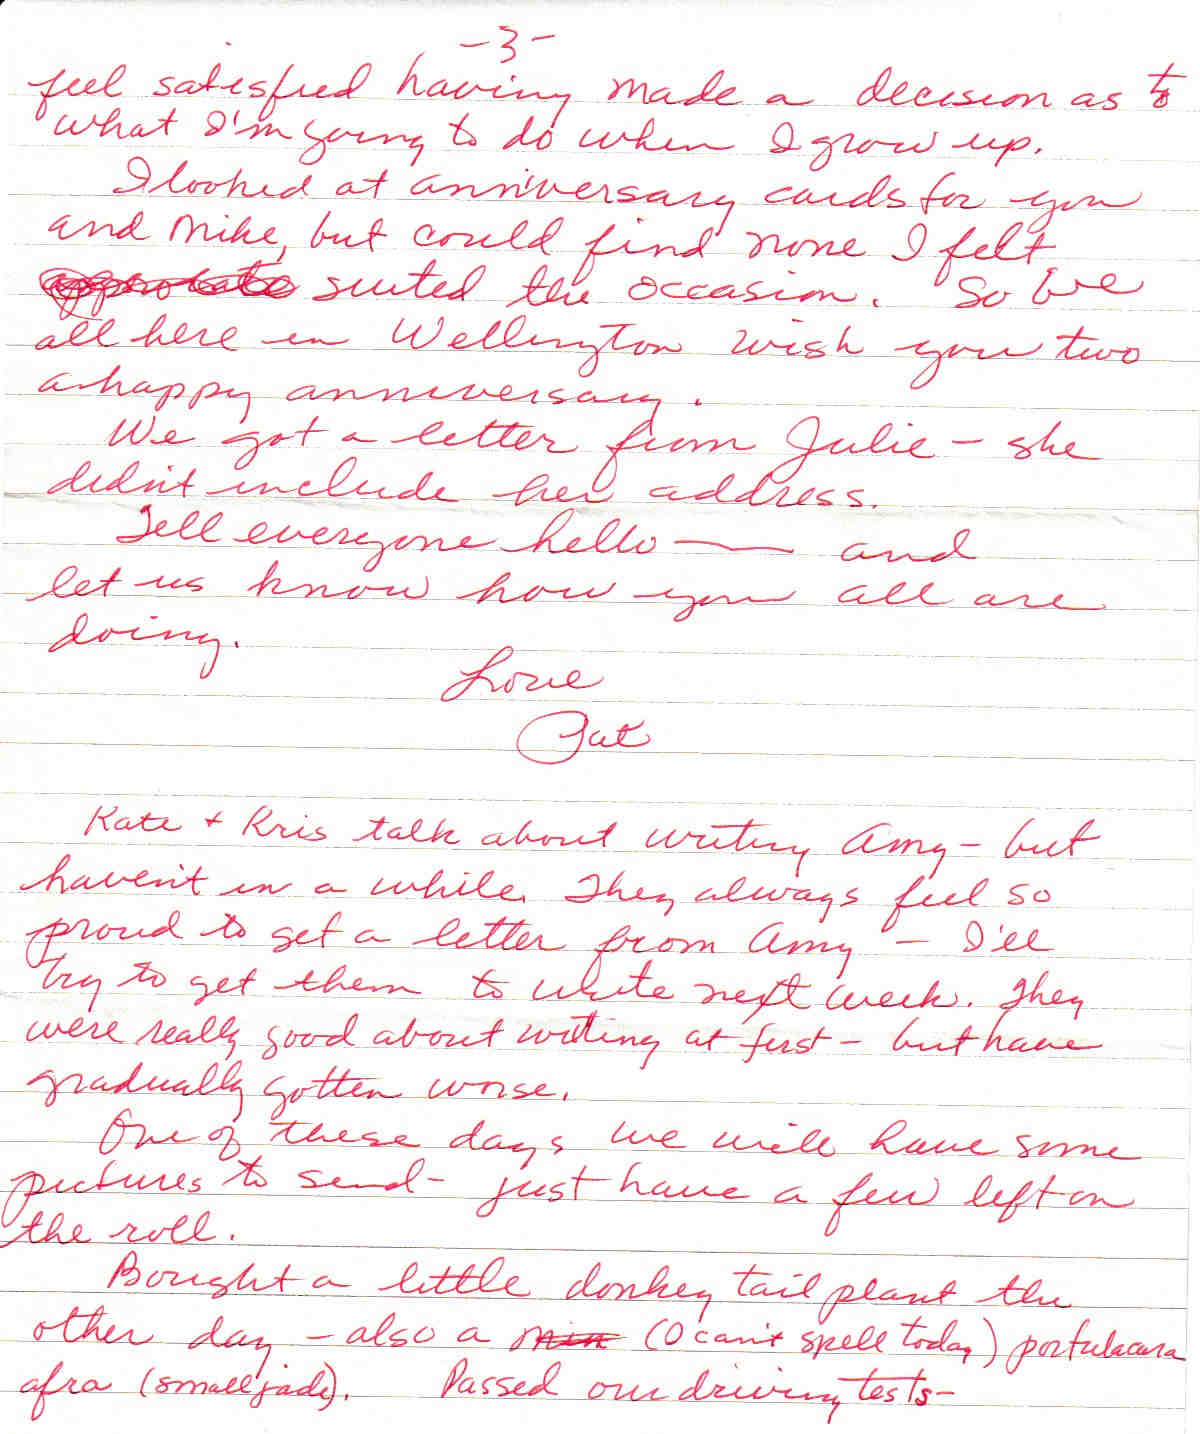 -3-
feel satisfied having made a decision as to
what I'm going to do when I grow up.
I looked at anniversary cards for you
and Mike, but could find none I felt
suited the occasion. So we
all here in Wellington wish you two
a happy anniversary.
We got a letter from Julie - she
didn't include her address.
Tell everyone hello — and
let us know how you all are
doing.
Love
Pat
Kate + Kris talk about writing Amy - but
haven't in a while. They always feel so
proud to get a letter from Amy - I'll
try to get them to write next week. They
were really good about writing at first - but have
gradually gotten worse.
One of these days we will have some
pictures to send - just have a few left on
the roll.
Bought a little donkey tail plant the
other day - also a (I can't spell today) portulacara
afra (small jade). Passed our driving tests -